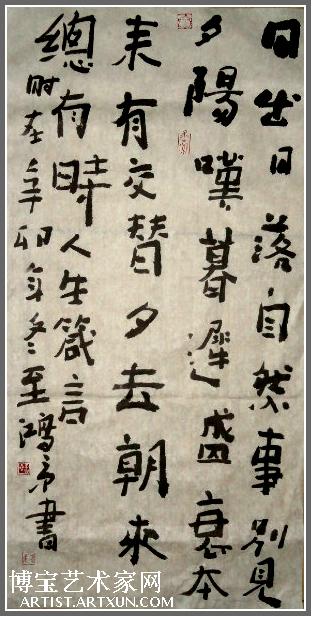 日出日落自然事別見
夕陽嘆暮遲盛衰本
来有交替夕去朝來
總有時人生箴言
时在辛卯年冬至鴻彦書
博宝艺术家网
ARTIST.ARTXUN.COM